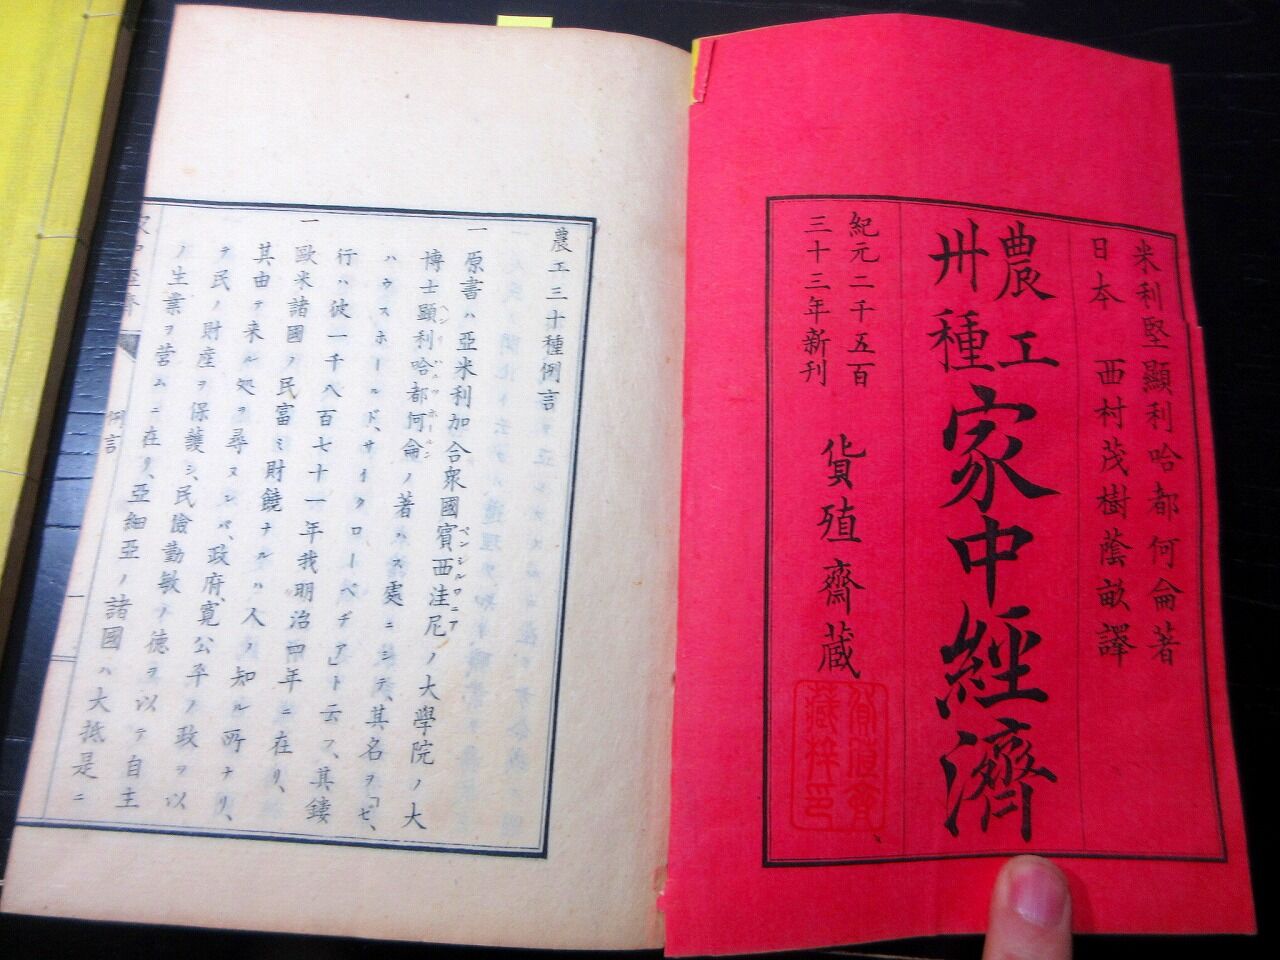 米利堅 顯利哈都何侖著
日本 西村茂樹蔭畝譯
農工
卅種
家中經濟
紀元二千五百
三十三年新刊
貨殖齋蔵
農工三十種例言
一 原書ハ亞米利加合衆國賓西洼尼ノ大學院ノ大
ペンシルロニア
博士顯利哈都何侖ノ著ハス處ニシテ、其名ヲ「ゼ、
ハウスホールド、サイクローペヂア」ト云フ、其鏤
行ハ彼一千八百七十一年我明治四年ニ在リ、
一 歐米諸國ノ民富ミ財饒ナルハ人ノ知ル所ナリ、
其由テ来ル処ヲ尋ヌレバ、政府、寛公平ノ政ヲ以
テ民ノ財産ヲ保護シ、民儉勤敏ノ德ヲ以テ自主
ノ生業ヲ営ムニ在リ、亞細亞ノ諸國ハ大抵是ニ
例言
一